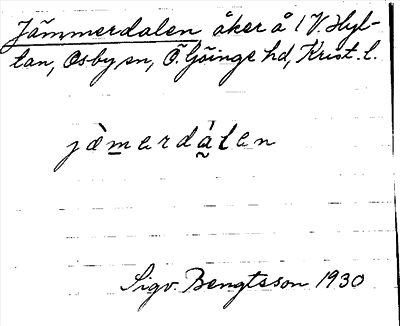 Jämmerdalen åker å 1 V. Hyl-
tan, Osby sn, Ö. Göinge hd, Krist. l.
jàmerdálen
Sigv. Bengtsson 1930